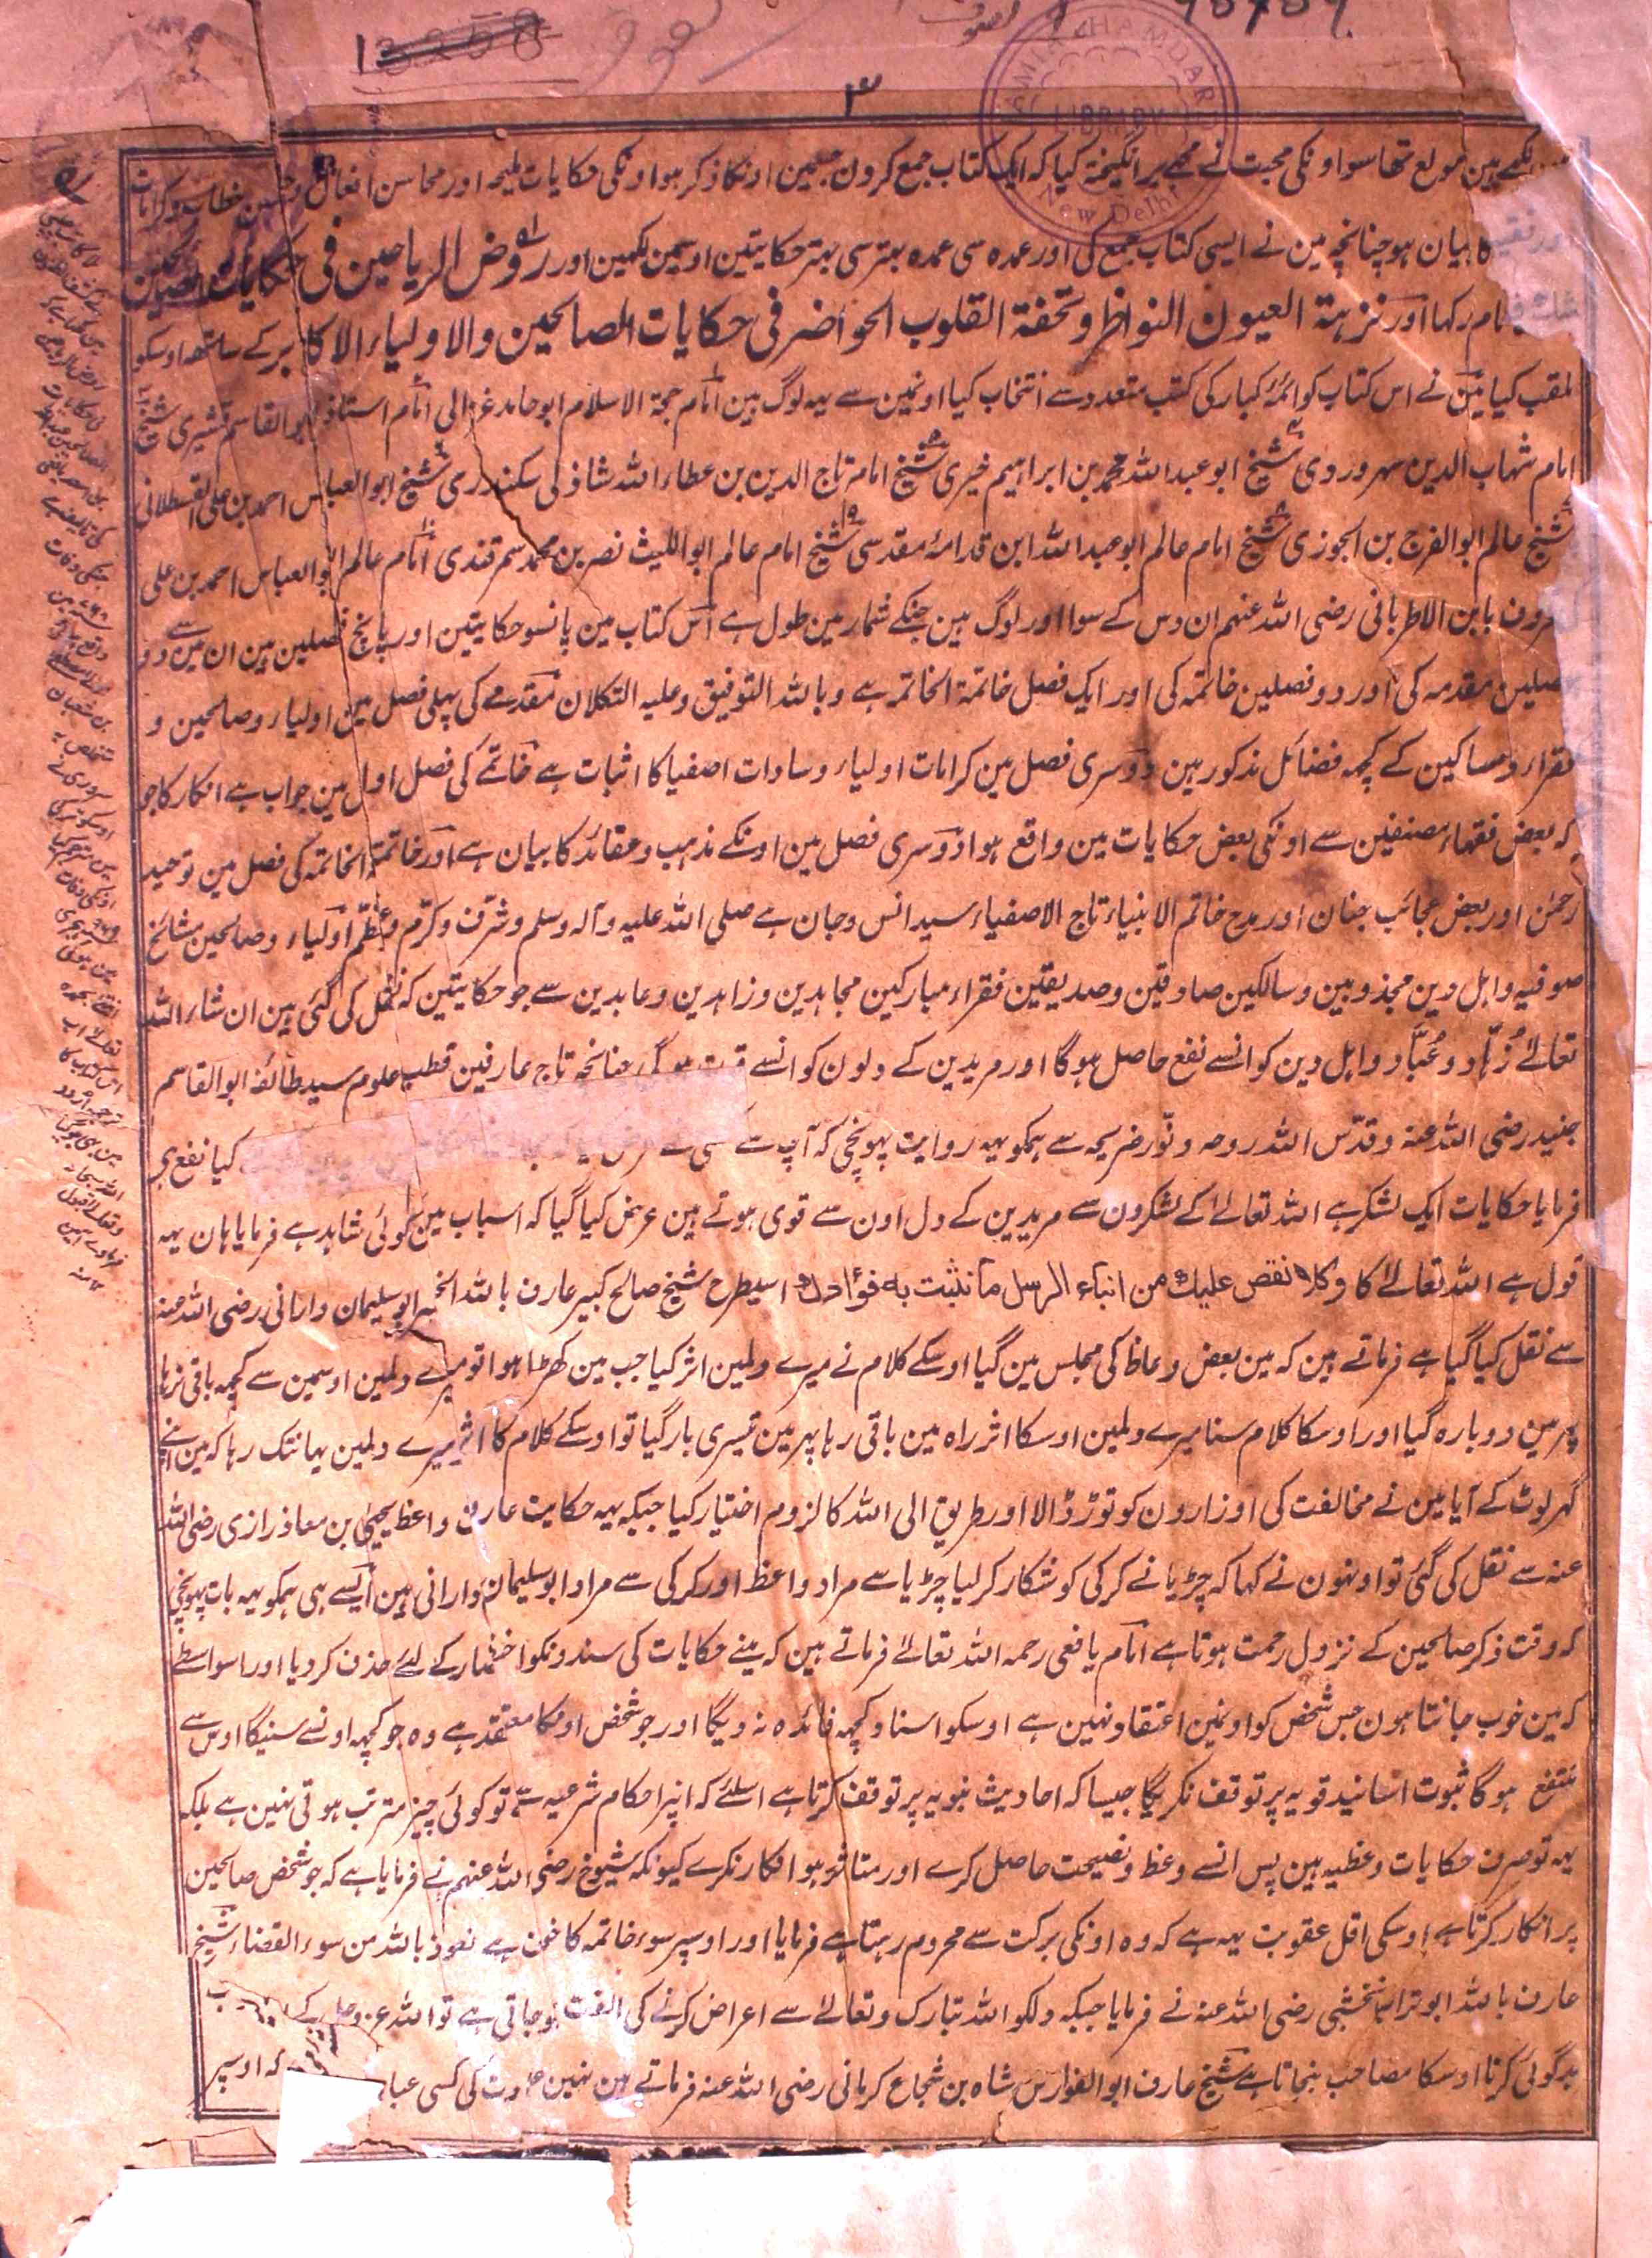 ۳
LIBRARY
New Delhi
ہین مولع تھا سو اونکی محبت نے مجھے برانگیختہ کیا کہ ایک کتاب جمع کرون جسمین اونکا ذکر ہو اونکی حکایات ملیحہ اور محاسن افعال خطاب و کرامات
کا بیان ہو چنانچہ مین نے ایسی کتاب جمع کی اور عمدہ سی عمدہ بہتر سی بہتر حکایتین اوسمین لکھین اور روض الریاحین فی حکایات الصالحین
نام رکھا اور نزہتہ العیون النواظر وتحفتہ القلوب الحواضر فی حکایات الصالحین والاولیاء الاکابر کے ساتھ اوسکو
لمقب کیا مین نے اس کتاب کو ائمۂ کبار کی کتب متعدد سے انتخاب کیا اونمین سے یہہ لوگ ہین امام حجۃ الاسلام ابو حامد غزالی امام استاذ ابو القاسم قشیری شیخ
امام شہاب الدین سہروردی شیخ ابو عبد اللہ محمد بن ابراہیم خیری شیخ امام تاج الدین بن عطاء اللہ شاذلی سکندری شیخ ابو العباس احمد بن علی القسطلانی
شیخ عالم ابو الفرج بن الجوزی شیخ امام عالم ابو عبد اللہ ابن قدامۂ مقدسی شیخ امام عالم ابو اللیث نصر بن محمد سمرقندی امام عالم ابو العباس احمد بن علی
بابن الاطربانی رضی اللہ عنہم ان دس کے سوا اور لوگ ہین جنکے شمار مین طول ہے اس کتاب مین پانسو حکایتین اور پانچ فصلین ہین ان مین سے دو
فصلین مقدمہ کی اور دو فصلین خاتمہ کی اور ایک فصل خاتمۃ الخاتمہ ہے وباللہ التوفیق وعلیہ التکلان مقدمے کی پہلی فصل مین اولیاء وصالحین و
فقراء ومساکین کے کچہہ فضائل مذکور ہین دوسری فصل مین کرامات اولیاء وسادات اصفیا کا اثبات ہے خاتمے کی فصل اول مین جواب ہے انکار کا جو
کہ بعض فقہاء مصنفین سے اونکی بعض حکایات مین واقع ہوا دوسری فصل مین اونکے مذہب وعقائد کا بیان ہے اور خاتمۃ الخاتمہ کی فصل مین توحید
رحمٰن اور بعض عجائب جنان اور مدح خاتم الانبیاء تاج الاصفیاء سید انس وجان ہے صلی اللہ علیہ وآلہ وسلم وشرف وکرّم وعظّم اولیاء وصالحین مشائخ
صوفیہ واہل دین مجذوبین وسالکین صادقین وصدیقین فقراء مبارکین مجاہدین وزاہدین وعابدین سے جو حکایتین کہ نقل کی گئی ہین ان شاء اللہ
تعالےٰ زُہّاد وعُبّاد واہل دین کو انسے نفع حاصل ہوگا اور مریدین کے دلون کو انسے قوت ہوگی چنانچہ تاج عارفین قطب علوم سید طائفہ ابو القاسم
جنید رضی اللہ عنہ وقدّس اللہ روحہ ونوّر ضریحہ سے ہمکو یہہ روایت پہونچی کہ آپ سے کسی نے کیا نفع ہے
فرمایا حکایات ایک لشکر ہے اللہ تعالےٰ کے لشکرون سے مریدین کے دل اون سے قوی ہوتے ہین عرض کیا گیا کہ اسباب مین کوئی شاہد ہے فرمایا ہان یہہ
قول ہے اللہ تعالےٰ کا وکلا نقص علیک من انباء الرسل ما نثبت بہ فؤادک اسیطرح شیخ صالح کبیر عارف باللہ الخبیر ابو سلیمان دارانی رضی اللہ عنہ
سے نقل کیا گیا ہے فرماتے ہین کہ مین بعض وعاظ کی مجلس مین گیا اوسکے کلام نے میرے دلمین اثر کیا جب مین کھڑا ہوا تو میرے دلمین اوسمین سے کچہہ باقی نرہا
پہر مین دوبارہ گیا اور اوسکا کلام سنا میرے دلمین اوسکا اثر راہ مین باقی رہا پہر مین تیسری بار گیا تو اوسکے کلام کا اثر میرے دلمین یہانتک رہا کہ مین اپنے
گہر لوٹ کے آیا مین نے مخالفت کی اوزارون کو توڑ ڈالا اور طریق الی اللہ کا لزوم اختیار کیا جبکہ یہہ حکایت عارف واعظ یحییٰ بن معاذ رازی رضی اللہ
عنہ سے نقل کی گئی تو اونہون نے کہا کہ چڑیا نے کرکی کو شکار کر لیا چڑیا سے مراد واعظ اور کرکی سے مراد ابو سلیمان دارانی ہین ایسے ہی ہمکو یہہ بات پہونچی
کہ وقت ذکر صالحین کے نزول رحمت ہوتا ہے امام یافعی رحمہ اللہ تعالےٰ فرماتے ہین کہ مینے حکایات کی سندونکو اختصار کے لئے حذف کر دیا اور اسواسطے
کہ مین خوب جانتا ہون جس شخص کو اونمین اعتقاد نہین ہے اوسکو اسناد کچہہ فائدہ نہ دیگا اور جو شخص اونکا معتقد ہے وہ جو کچہہ اونسے سنیگا اوس سے
منتفع ہوگا ثبوت اسانید قویہ پر توقف نکریگا جیسا کہ احادیث نبویہ پر توقف کرتا ہے اسلئے کہ انپر احکام شرعیہ سے تو کوئی چیز مترتب ہوتی نہین ہے بلکہ
یہہ تو صرف حکایات وعظیہ ہین پس انسے وعظ ونصیحت حاصل کرے اور متاثر ہو انکار نکرے کیونکہ شیوخ رضی اللہ عنہم نے فرمایا ہے کہ جو شخص صالحین
پر انکار کرتا ہے اوسکی اقل عقوبت یہہ ہے کہ وہ اونکی برکت سے محروم رہتا ہے فرمایا اور اوسپر سوء خاتمہ کا خوف ہے نعوذ باللہ من سوء القضاء شیخ
عارف باللہ ابو تراب نخشبی رضی اللہ عنہ نے فرمایا جبکہ دلکو اللہ تبارک وتعالےٰ سے اعراض کرنے کی الفت ہو جاتی ہے تو اللہ عز وجل کے
بدگوئی کرنا اوسکا مصاحب بنجاتا ہے شیخ عارف ابو الفوارس شاہ بن شجاع کرمانی رضی اللہ عنہ فرماتے ہین نہین عبادت کی کسی کہ اوسپر
اس کتاب کا
ترجمہ اردو
مین بھی ہوگیا
اللہ سبحانہ
وتعالےٰ قبول
فرماوے آمین
۱۲ منہ